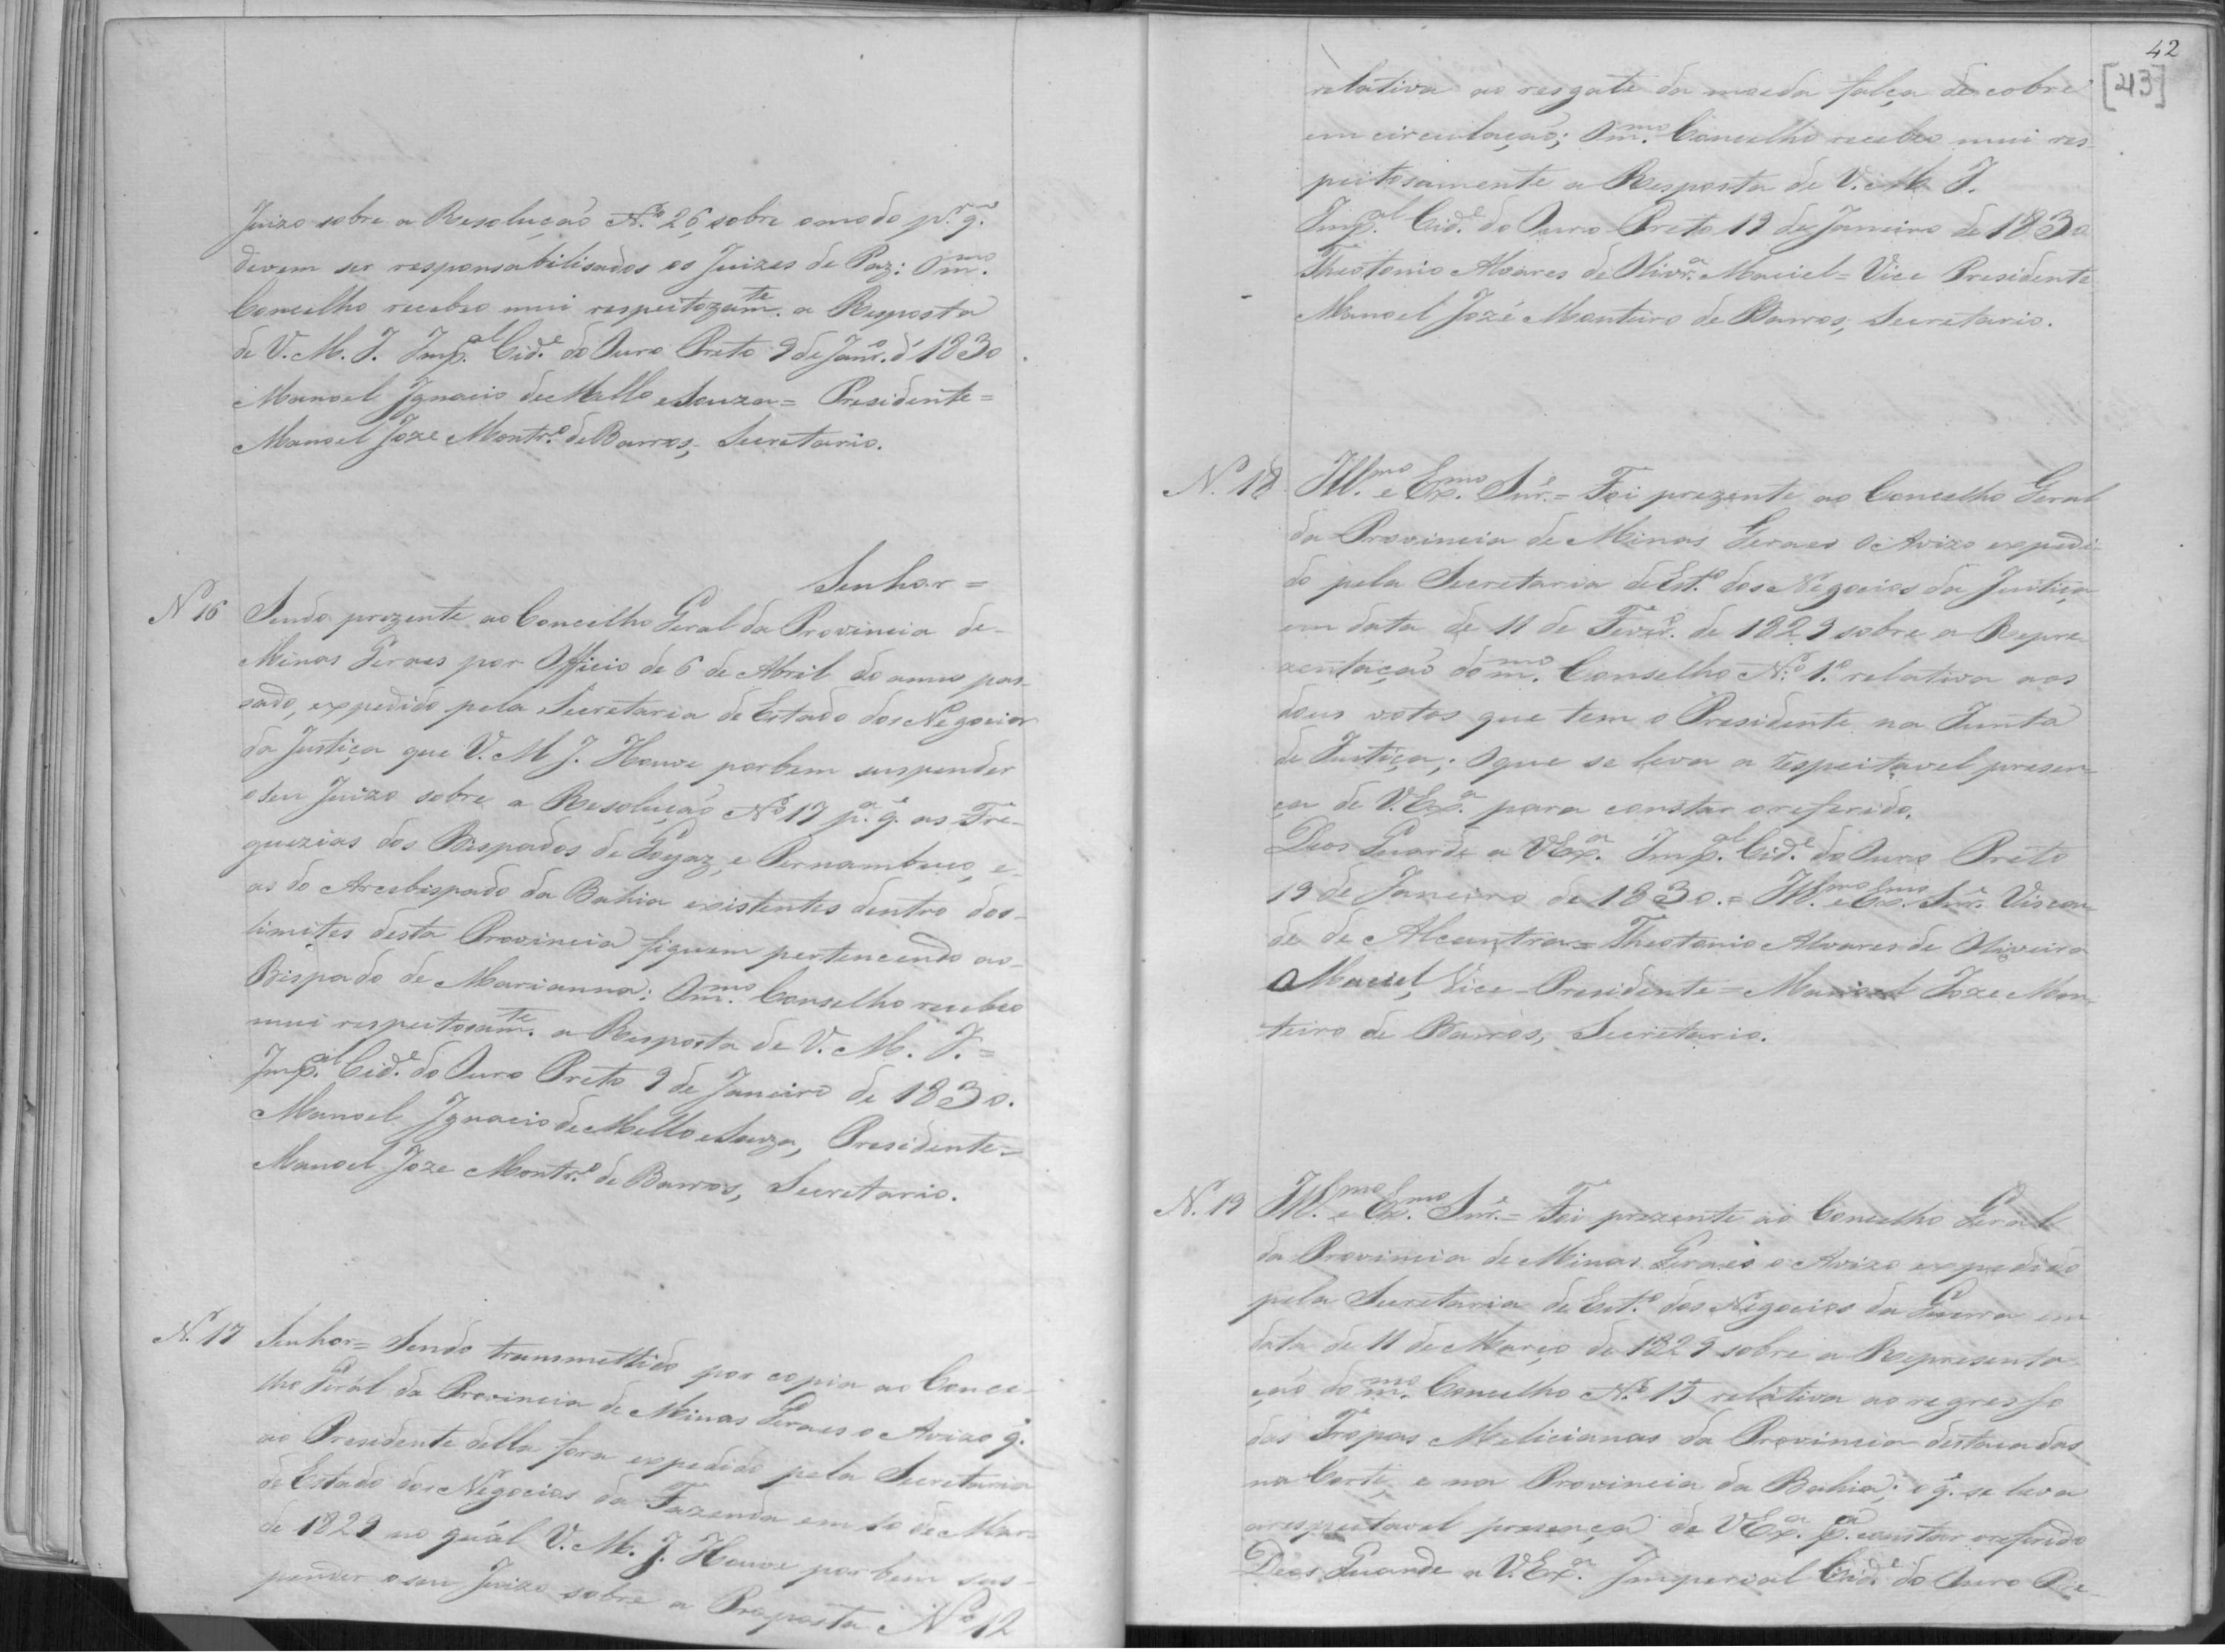 Juizo sobre a Resolução N.º 26, sobre o modo p.r q.
devem ser responsabilisados os Juizes de Paz: O m.mo
Concelho recebeo mui respeitozam.te a Resposta
de V. M. I. Imp.al Cid.e do Ouro Preto 9 de Janr.o d' 1830
Manoel Ignacio de Mello e Souza = Presidente =
Manoel Joze Montr.o de Barros, Secretario.
Senhor =
N 16 Sendo prezente ao Concelho Geral da Provincia de
Minas Geraes por Officio de 6 de Abril do anno pas-
sado, expedido pela Secretaria de Estado dos Negocios
da Justiça que V. M. I. Houve por bem suspender
o seu Juizo sobre a Resolução N.º 17 p.a q. as Fre-
guezias dos Bispados de Goyaz, e Pernambuco, e
as do Arcebispado da Bahia existentes dentro dos
limites desta Provincia fiquem pertencendo ao
Bispado de Marianna: O m.mo Conselho recebeo
mui respeitosam.te a Resposta de V. M. I. =
Imp.al Cid.e do Ouro Preto 9 de Janeiro de 1830.
Manoel Ignacio de Mello e Souza, Presidente =
Manoel Joze Montr.o de Barros, Secretario.
N. 17 Senhor = Sendo transmettido por copia ao Conce-
lho Geral da Provincia de Minas Geraes o Avizo q.
ao Presidente della fora expedido pela Secretaria
de Estado dos Negocios da Fazenda em 10 de Mar-
de 1829 no qual V. M. I. Houve por bem sus-
pender o seu Juizo sobre a Proposta N.º 12
42
[43]
relativa ao resgate da moeda falça de cobre
em circulação; O m.mo Concelho recebeo mui res-
peitosamente a Resposta de V. M. I.
Imp.al Cid.e do Ouro Preto 19 de Janeiro de 1830
Theotonio Alvares de Olivr.a Maciel = Vice Presidente
Manoel Jozé Monteiro de Barros, Secretario.
N. 18 Ill.mo e Ex.mo Snr. = Foi prezente ao Concelho Geral
da Provincia de Minas Geraes o Avizo expedi-
do pela Secretaria de Est.o dos Negocios da Justiça
em data de 11 de Fever.o de 1829 sobre a Repre
zentação do m.mo Conselho N.º 1.º relativa aos
dous votos que tem o Presidente na Junta
de Justiça; O que se leva a respeitavel presen-
ça de V. Ex.a para constar o referido.
Deos Guarde a V Ex.a Imp.al Cid.e do Ouro Preto
19 de Janeiro de 1830. = Ill.mo e Ex.mo Snr. Viscon-
de de Alcantra = Theotonio Alvares de Oliveira
Maciel, Vice-Presidente = Manoel Joze Mon-
teiro de Barros, Secretario.
N. 19 Ill.mo e Ex.mo Snr. = Foi prezente ao Concelho Geral
da Provincia de Minas Geraes o Avizo expedido
pela Secretaria de Est.o dos Negocios da Guerra em
data de 11 de Março de 1829 sobre a Representa
ção do m.mo Concelho N.º 15 relativa ao regresso
das Tropas Melicianas da Provincia destacadas
na Corte, e na Provincia da Bahia; o q. se leva
a respeitavel presença de V Ex.a p.a constar o referido
Deos Guarde a V. Ex.a Imperial Cid.e do Ouro Pre-